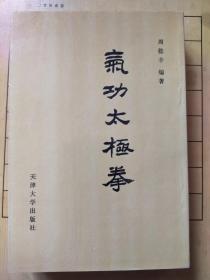 周稔丰 编著
氣功太極拳
天津大学出版社